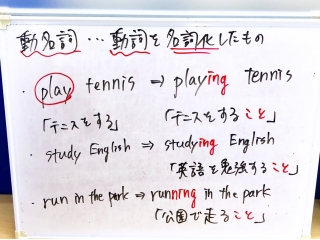 動名詞…動詞を名詞化したもの
・play tennis ⇒ playing tennis
「テニスをする」 「テニスをすること」
・study English ⇒ studying English
「英語を勉強すること」
・run in the park ⇒ running in the park
「公園で走ること」